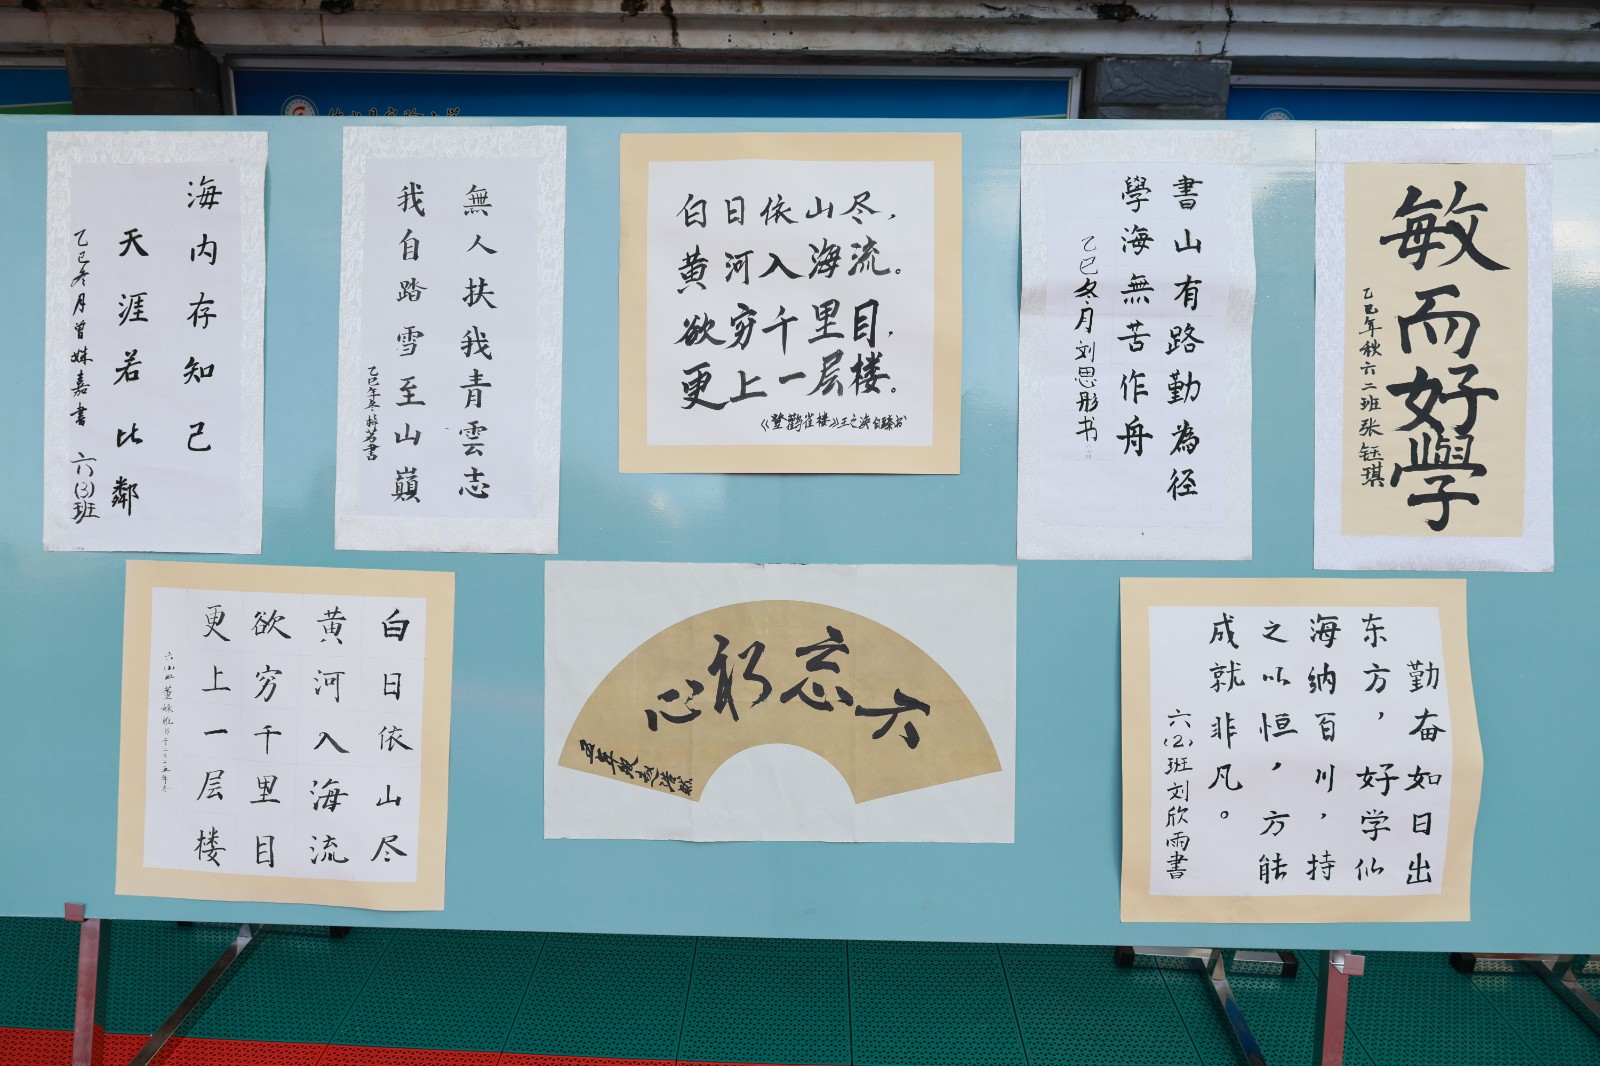 海内存知己
天涯若比鄰
乙巳冬月曾姝嘉書
六(3)班
無人扶我青雲志
我自踏雪至山巔
白日依山尽，
黄河入海流。
欲穷千里目，
更上一层楼。
書山有路勤為径
學海無苦作舟
乙巳冬月刘思彤书
敏而好學
乙巳年秋六二班张钰琪
白日依山尽
黄河入海流
欲穷千里目
更上一层楼
勤奋如日出
东方，好学似
海纳百川，持
之以恒，方能
成就非凡。
六(2)班刘欣雨書